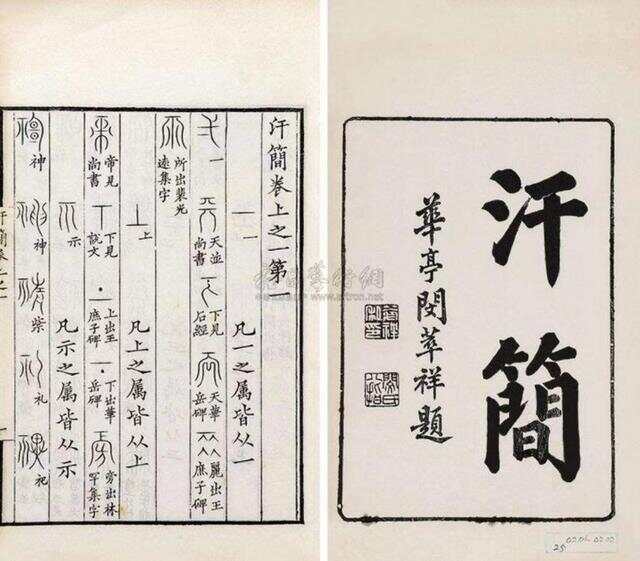 汗簡
華亭閔萃祥題
汗簡卷上之一第一
一 凡一之屬皆从一
一 天並尚書 下見石經 天華岳碑 麗出王庶子碑
所出裴光遠集字
上 凡上之屬皆从上
帝見尚書 下見說文 上出王庶子碑 下出華岳碑 旁出林罕集字
示 凡示之屬皆从示
神 神 柴 礼 祀
www.artron.net